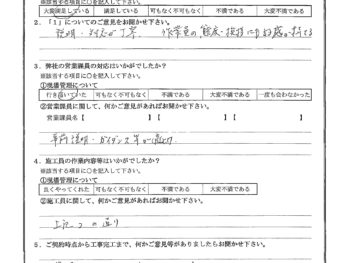 ※該当する項目に○を記入して下さい。
大変満足している 満足している 可もなく不可もなく 不満である 大変不満である
2．「1」についてのご意見をお聞かせ下さい。
説明・対応が丁寧 作業員の態度・挨拶に好感が持てる
3．弊社の営業課員の対応はいかがでしたか？
※該当する項目に○を記入して下さい。
①現場管理について
行き届いていた 可もなく不可もなく 不満である 大変不満である 一度も会わなかった
②営業課員に関して、何かご意見があればお聞かせ下さい。
営業課員名【 】【 】【 】
事前説明・ガイダンス等が適切
4．施工員の作業内容等はいかがでしたか？
※該当する項目に○を記入して下さい。
①現場管理について
良くやってくれた 可もなく不可もなく 不満である 大変不満である
②施工員に関して、何かご意見があればお聞かせ下さい。
上記2の通り
5．ご契約時点から工事完工まで、何かご意見等がありましたらお聞かせ下さい。